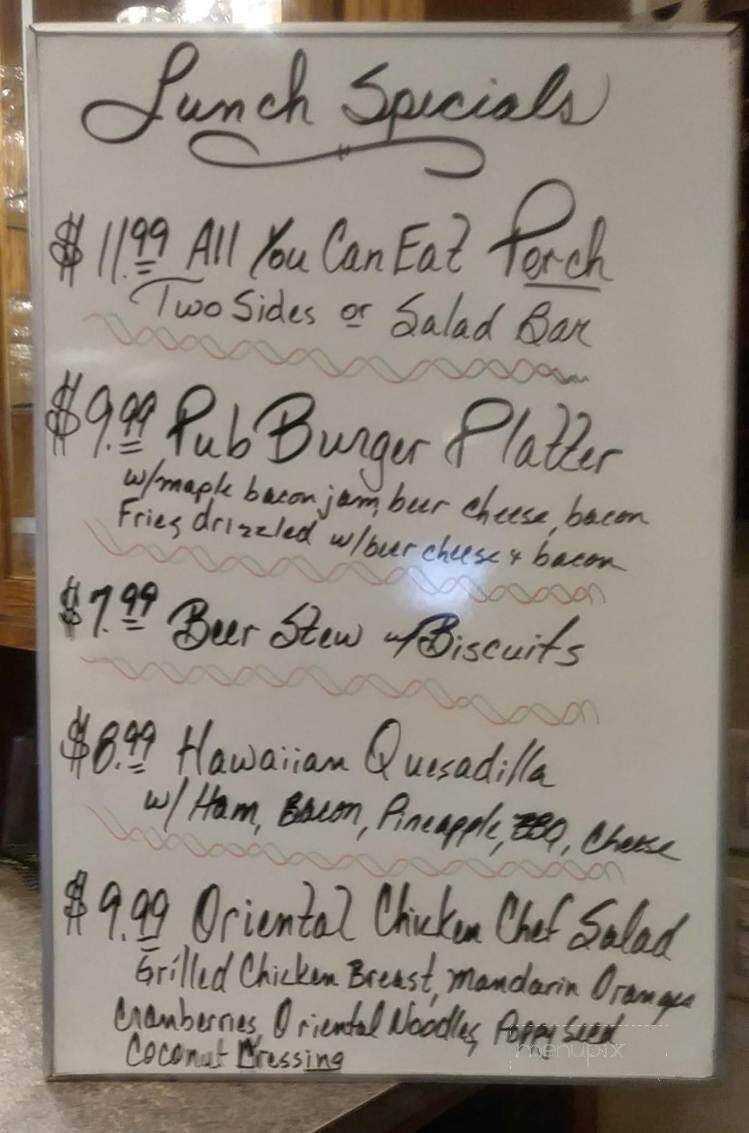 Lunch Specials
$11.99 All You Can Eat Perch
Two Sides or Salad Bar
$9.99 Pub Burger Platter
w/maple bacon jam, beer cheese, bacon
Fries drizzled w/beer cheese & bacon
$7.99 Beer Stew w/Biscuits
$8.99 Hawaiian Quesadilla
w/ Ham, Bacon, Pineapple, BBQ, Cheese
$9.99 Oriental Chicken Chef Salad
Grilled Chicken Breast, Mandarin Oranges
Cranberries, Oriental Noodles, Poppy Seed
Coconut Dressing
menupix